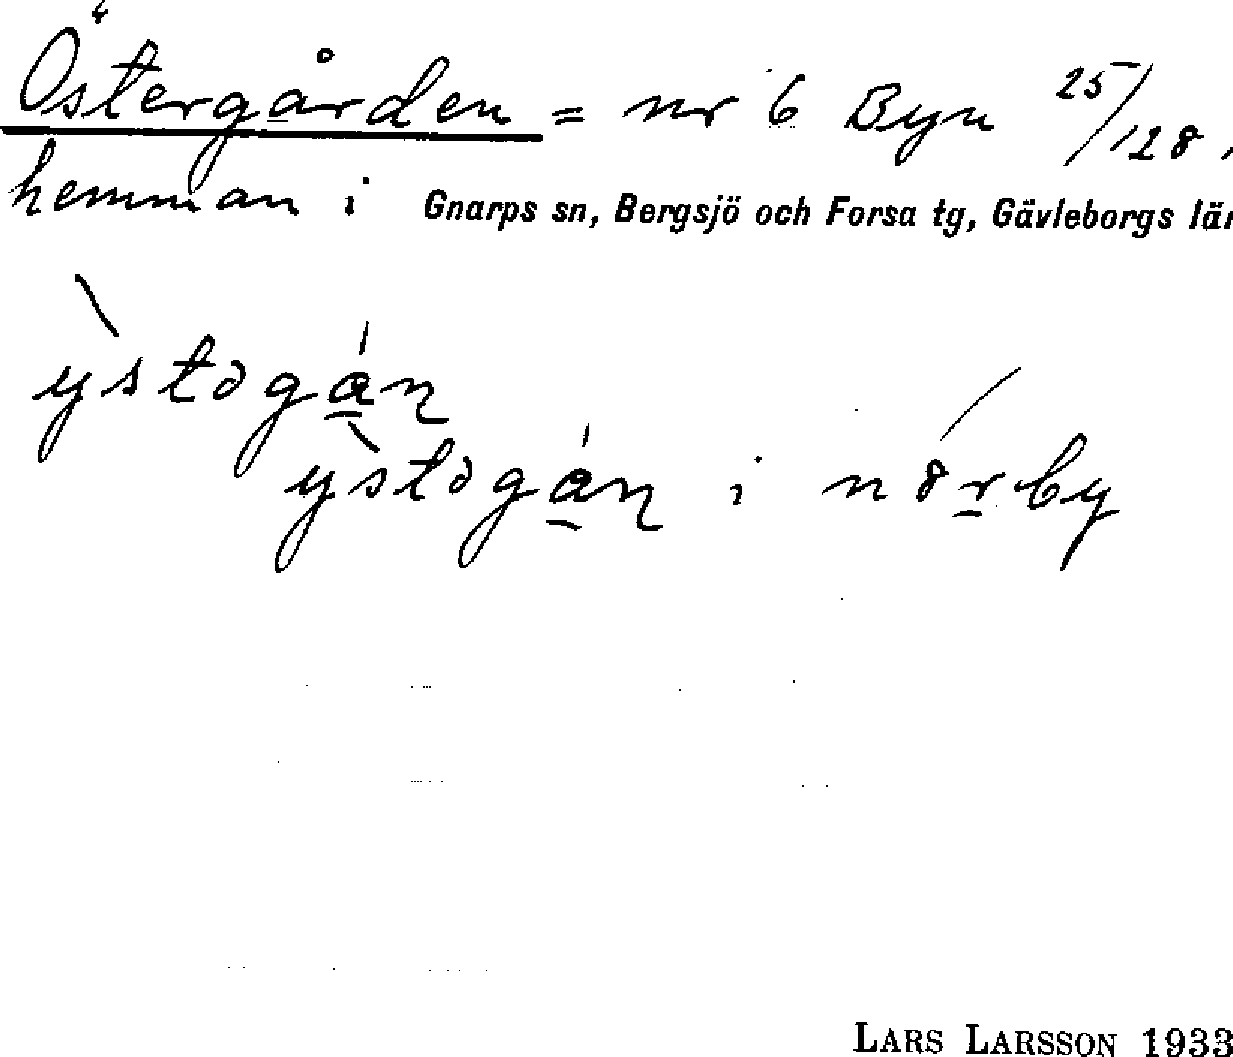 Östergården = nr 6 Byn 25/128.
hemman i Gnarps sn, Bergsjö och Forsa tg, Gävleborgs län
ỳstəgán
ỳstəgán i nórby
LARS LARSSON 1933